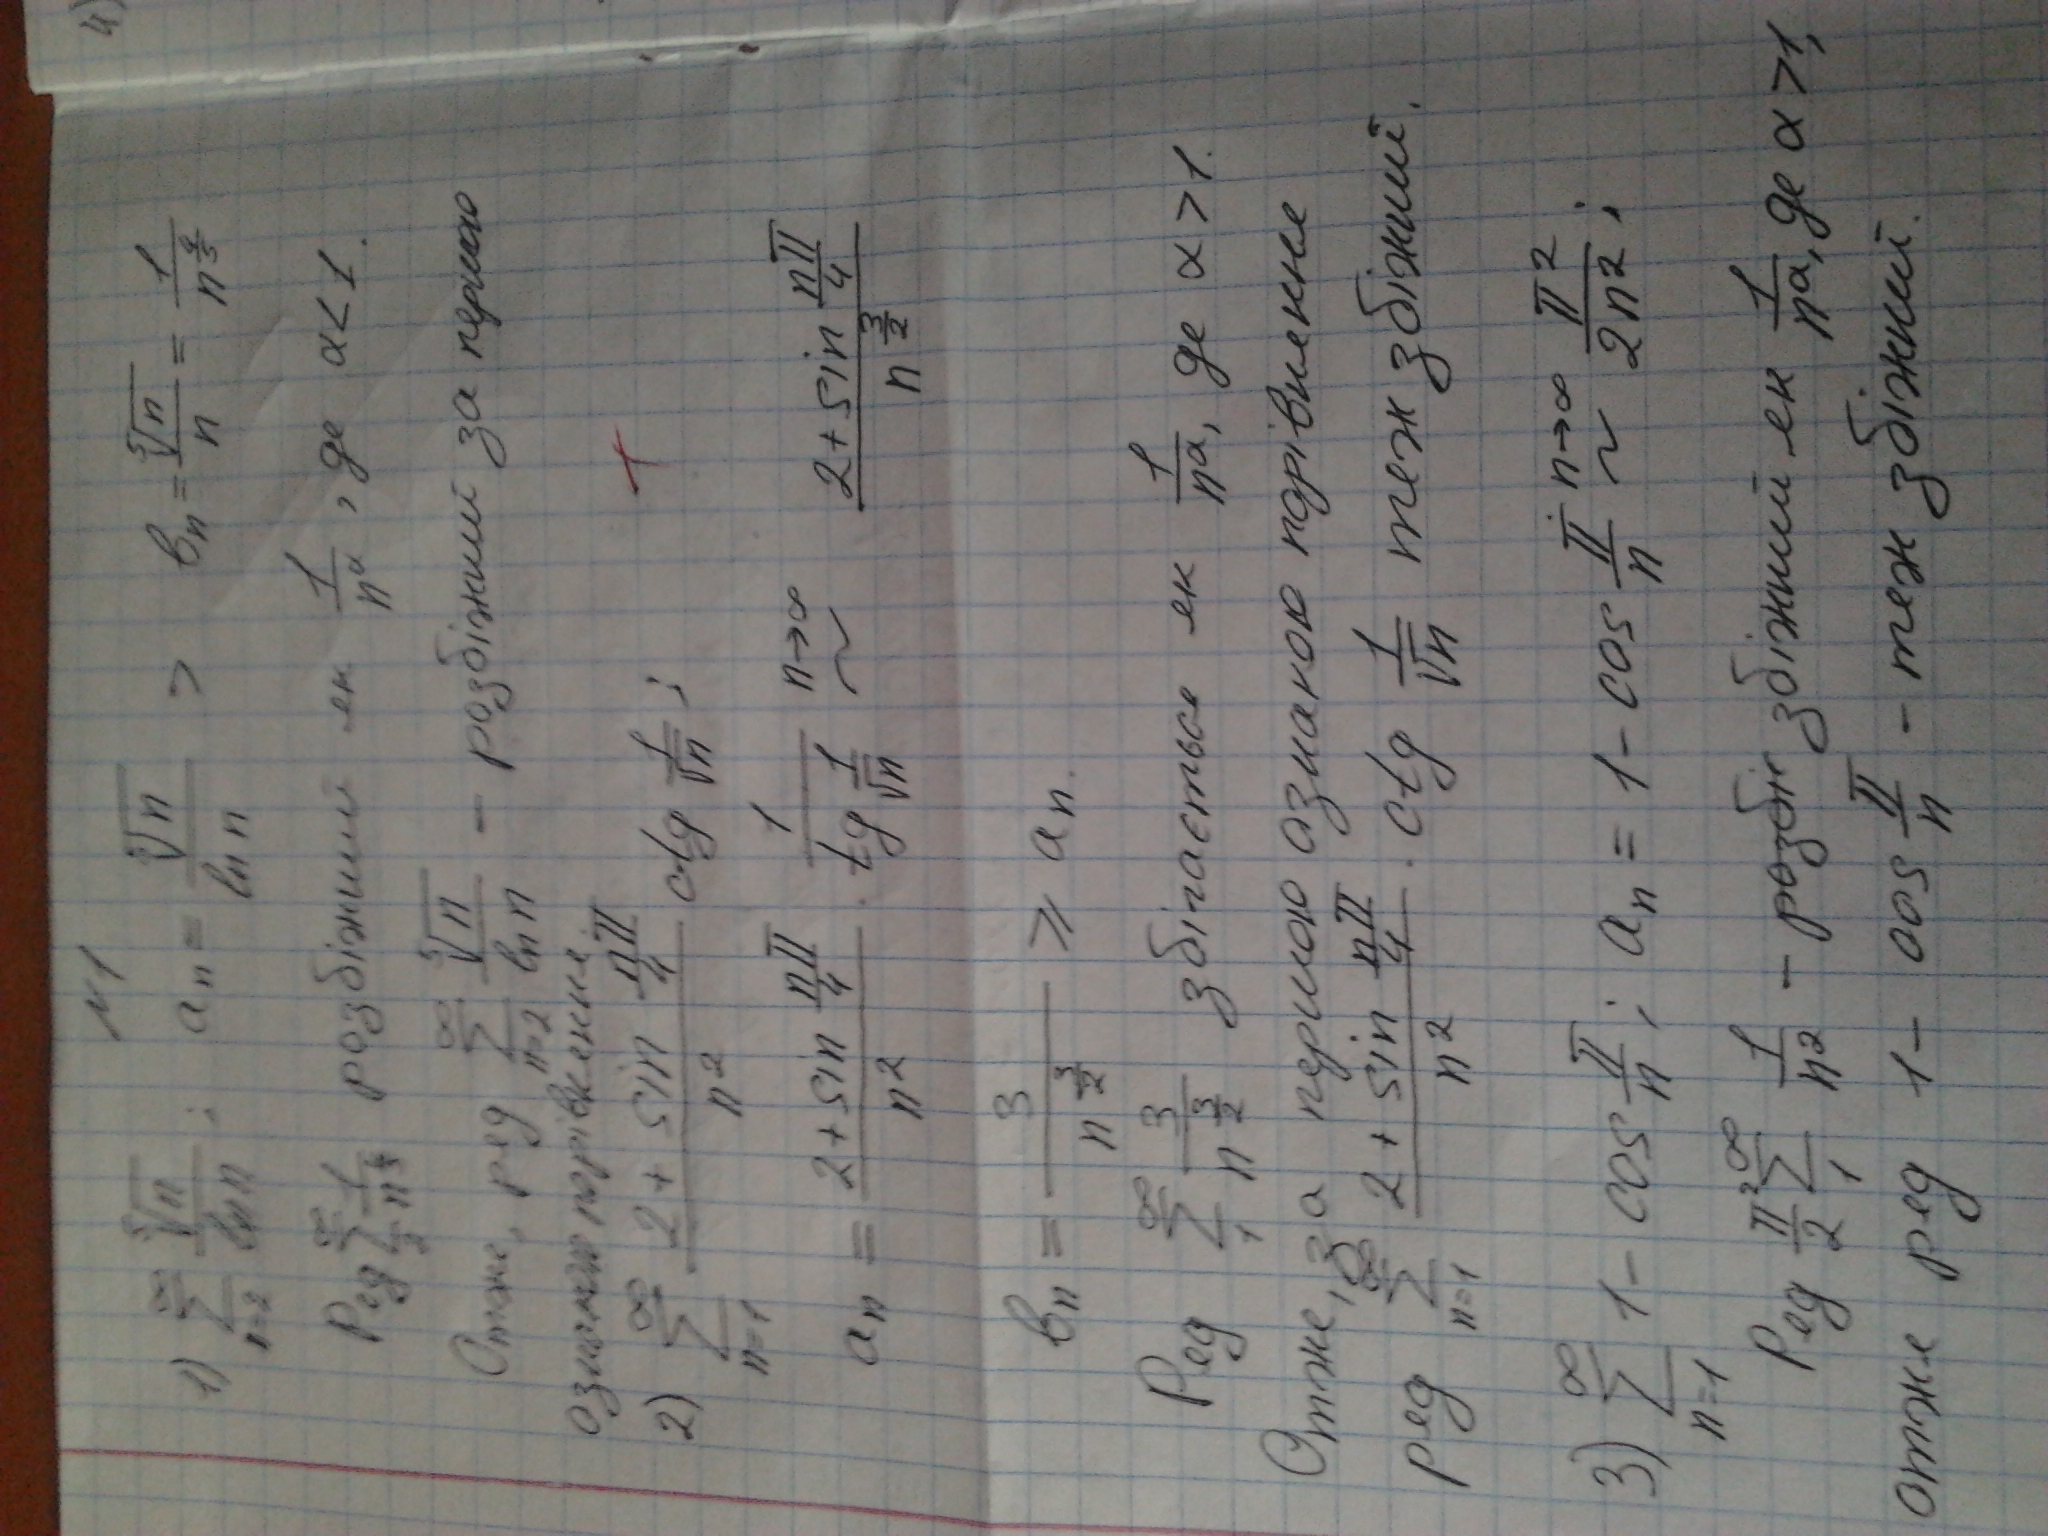 №1
1) ∑_{n=2}^{∞} ⁵√n / ln n ; a_n = ⁵√n / ln n > b_n = ⁵√n / n = 1 / n^{4/5}
Ряд ∑_{2}^{∞} 1 / n^{4/5} розбіжний як 1 / n^α , де α < 1.
Отже, ряд ∑_{n=2}^{∞} ⁵√n / ln n – розбіжний за першою
ознакою порівняння.
2) ∑_{n=1}^{∞} (2 + sin nπ/4) / n² ctg 1/√n ;
a_n = (2 + sin nπ/4) / n² · 1 / tg 1/√n ~ n→∞ (2 + sin nπ/4) / n^{3/2}
b_n = 3 / n^{3/2} ≥ a_n.
Ряд ∑_{1}^{∞} 3 / n^{3/2} збігається як 1 / n^α, де α > 1.
Отже, за першою ознакою порівняння
ряд ∑_{n=1}^{∞} (2 + sin nπ/4) / n² · ctg 1/√n теж збіжний.
3) ∑_{n=1}^{∞} 1 – cos π/n ; a_n = 1 – cos π/n ~ n→∞ π² / 2n² ;
Ряд π²/2 ∑_{1}^{∞} 1 / n² – розбіж збіжний як 1 / n^α, де α > 1,
отже ряд 1 – cos π/n – теж збіжний.
4)